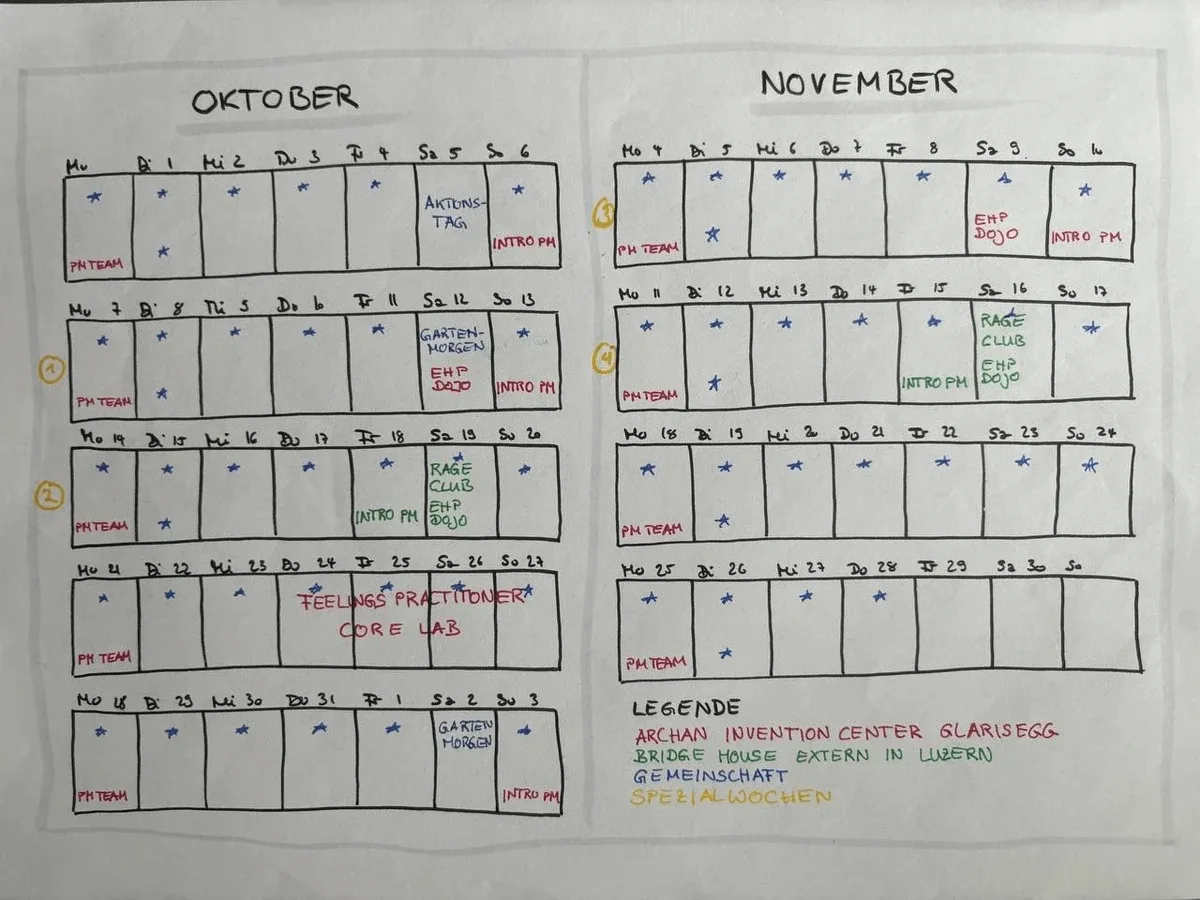 OKTOBER
Mo Di 1 Mi 2 Do 3 Fr 4 Sa 5 So 6
AKTONS-
TAG
PM TEAM INTRO PM
Mo 7 Di 8 Mi 9 Do 10 Fr 11 Sa 12 So 13
GARTEN-
MORGEN
1
EHP
DOJO
PM TEAM INTRO PM
Mo 14 Di 15 Mi 16 Do 17 Fr 18 Sa 19 So 20
RAGE
CLUB
2
EHP
DOJO
PM TEAM INTRO PM
Mo 21 Di 22 Mi 23 Do 24 Fr 25 Sa 26 So 27
FEELINGS PRACTITONER
CORE LAB
PM TEAM
Mo 28 Di 29 Mi 30 Do 31 Fr 1 Sa 2 So 3
GARTEN
MORGEN
PM TEAM INTRO PM
NOVEMBER
Mo 4 Di 5 Mi 6 Do 7 Fr 8 Sa 9 So 10
3
EHP
DOJO
PM TEAM INTRO PM
Mo 11 Di 12 Mi 13 Do 14 Fr 15 Sa 16 So 17
RAGE
CLUB
4
EHP
DOJO
PM TEAM INTRO PM
Mo 18 Di 19 Mi 20 Do 21 Fr 22 Sa 23 So 24
PM TEAM
Mo 25 Di 26 Mi 27 Do 28 Fr 29 Sa 30 So
PM TEAM
LEGENDE
ARCHAN INVENTION CENTER GLARISEGG
BRIDGE HOUSE EXTERN IN LUZERN
GEMEINSCHAFT
SPEZIALWOCHEN